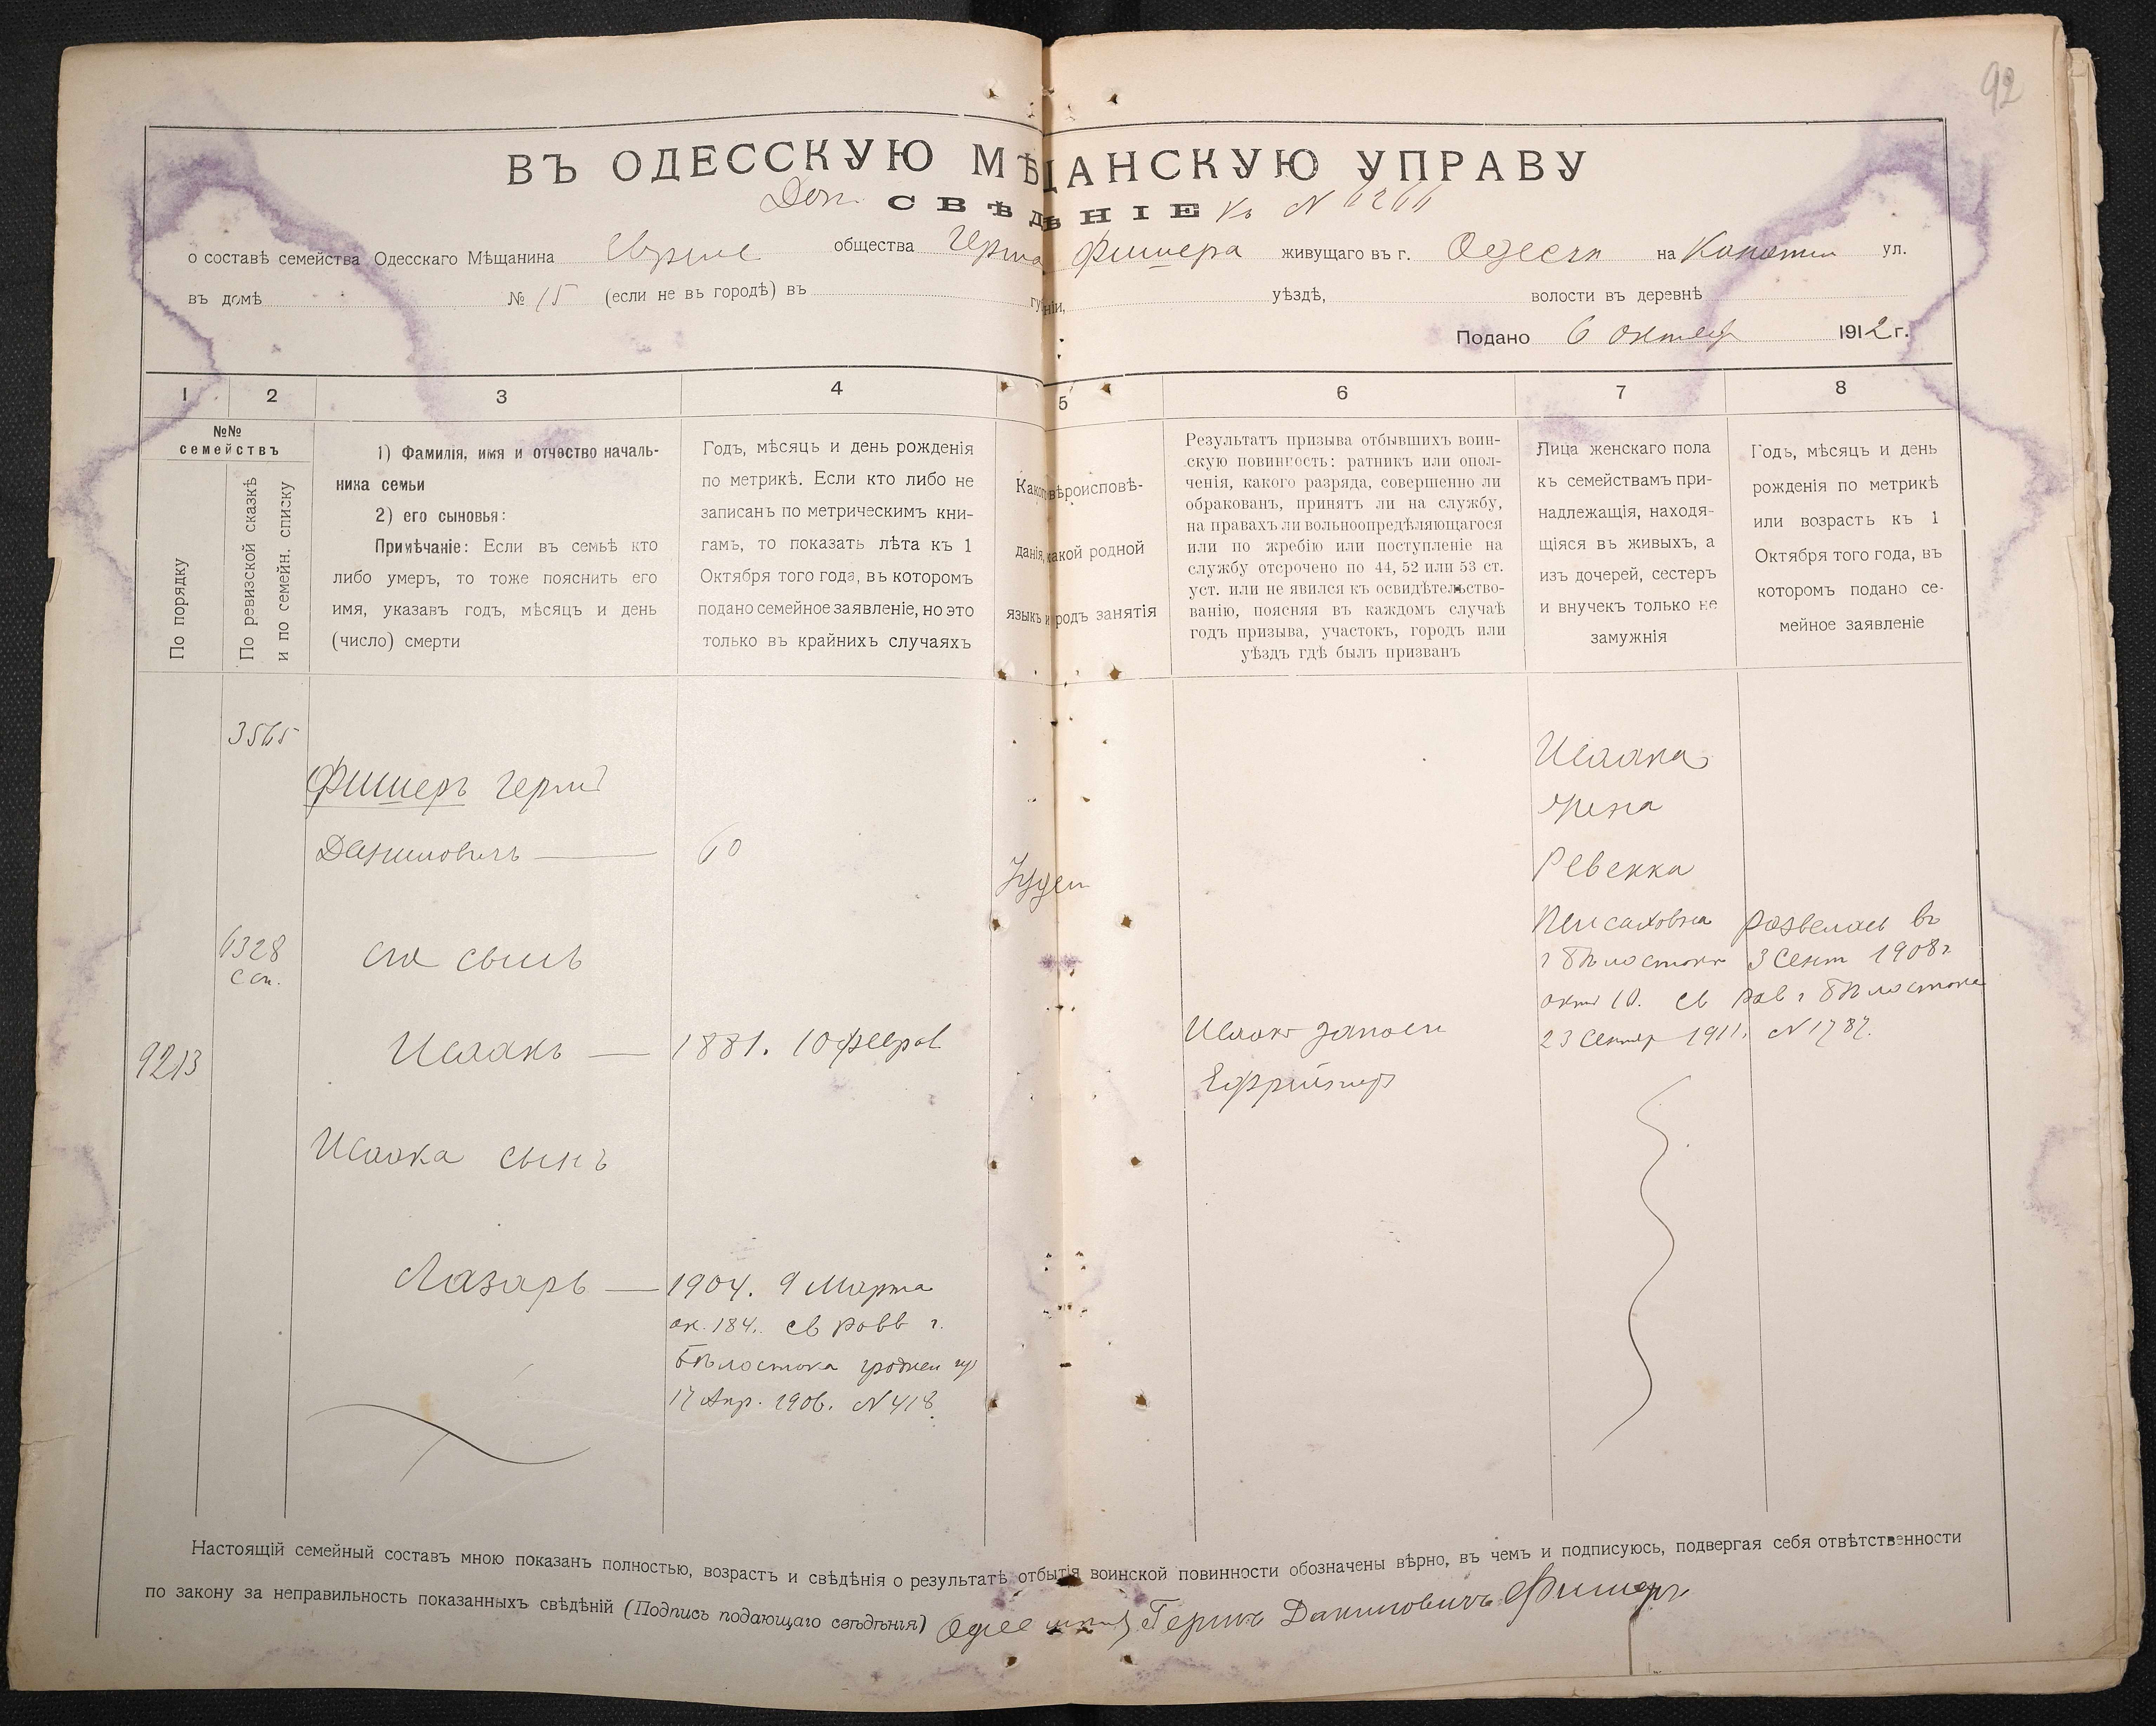 92
ВЪ ОДЕССКУЮ МѢЩАНСКУЮ УПРАВУ
Доп. СВѢДѢНІЕ къ № 6266
о составѣ семейства Одесскаго Мѣщанина общества Фишера живущаго въ г. Одессѣ на ул.
въ домѣ № 15 (если не въ городѣ) въ губерніи, уѣздѣ, волости въ деревнѣ
Подано 6 октября 1912 г.
1 2 3 4 5 6 7 8
№№ семействъ
По порядку
По ревизской сказкѣ
и по семейн. списку
1) Фамилія, имя и отчество началь-
ника семьи
2) его сыновья:
Примѣчаніе: Если въ семьѣ кто
либо умеръ, то тоже пояснить его
имя, указавъ годъ, мѣсяцъ и день
(число) смерти
Годъ, мѣсяцъ и день рожденія
по метрикѣ. Если кто либо не
записанъ по метрическимъ кни-
гамъ, то показать лѣта къ 1
Октября того года, въ которомъ
подано семейное заявленіе, но это
только въ крайнихъ случаяхъ
Какого вѣроисповѣ-
данія, какой родной
языкъ и родъ занятія
Результатъ призыва отбывшихъ воин-
скую повинность: ратникъ или опол-
ченія, какого разряда, совершенно ли
обракованъ, принятъ ли на службу,
на правахъ ли вольноопредѣляющагося
или по жребію или поступленіе на
службу отсрочено по 44, 52 или 53 ст.
уст. или не явился къ освидѣтельство-
ванію, поясняя въ каждомъ случаѣ
годъ призыва, участокъ, городъ или
уѣздъ гдѣ былъ призванъ
Лица женскаго пола
къ семействамъ при-
надлежащія, находя-
щіяся въ живыхъ, а
изъ дочерей, сестеръ
и внучекъ только не
замужнія
Годъ, мѣсяцъ и день
рожденія по метрикѣ
или возрастъ къ 1
Октября того года, въ
которомъ подано се-
мейное заявленіе
3565
Фишеръ Герш
Даниловичъ — 60
Іудей
6328
с сп.
его сынъ
9213
Исаакъ — 1881. 10 феврал
Исаакъ запасн
Ефрейтор
Исаака
жена
Ревекка
Пейсаховна развелась въ
г Бѣлостокѣ 3 Сент 1908 г.
актъ 10. св рав г Бѣлостока
23 Сентяр 1911. № 1787.
Исаака сынъ
Лазарь — 1904. 9 Марта
ак. 184. св равв г.
Бѣлостока гроднен гу
17 Апр. 1906. № 418.
Настоящій семейный составъ мною показанъ полностью, возрастъ и свѣдѣнія о результатѣ отбытія воинской повинности обозначены вѣрно, въ чемъ и подписуюсь, подвергая себя отвѣтственности
по закону за неправильность показанныхъ свѣдѣній (Подпись подающаго свѣдѣнія) Герш Даниловичъ Фишеръ